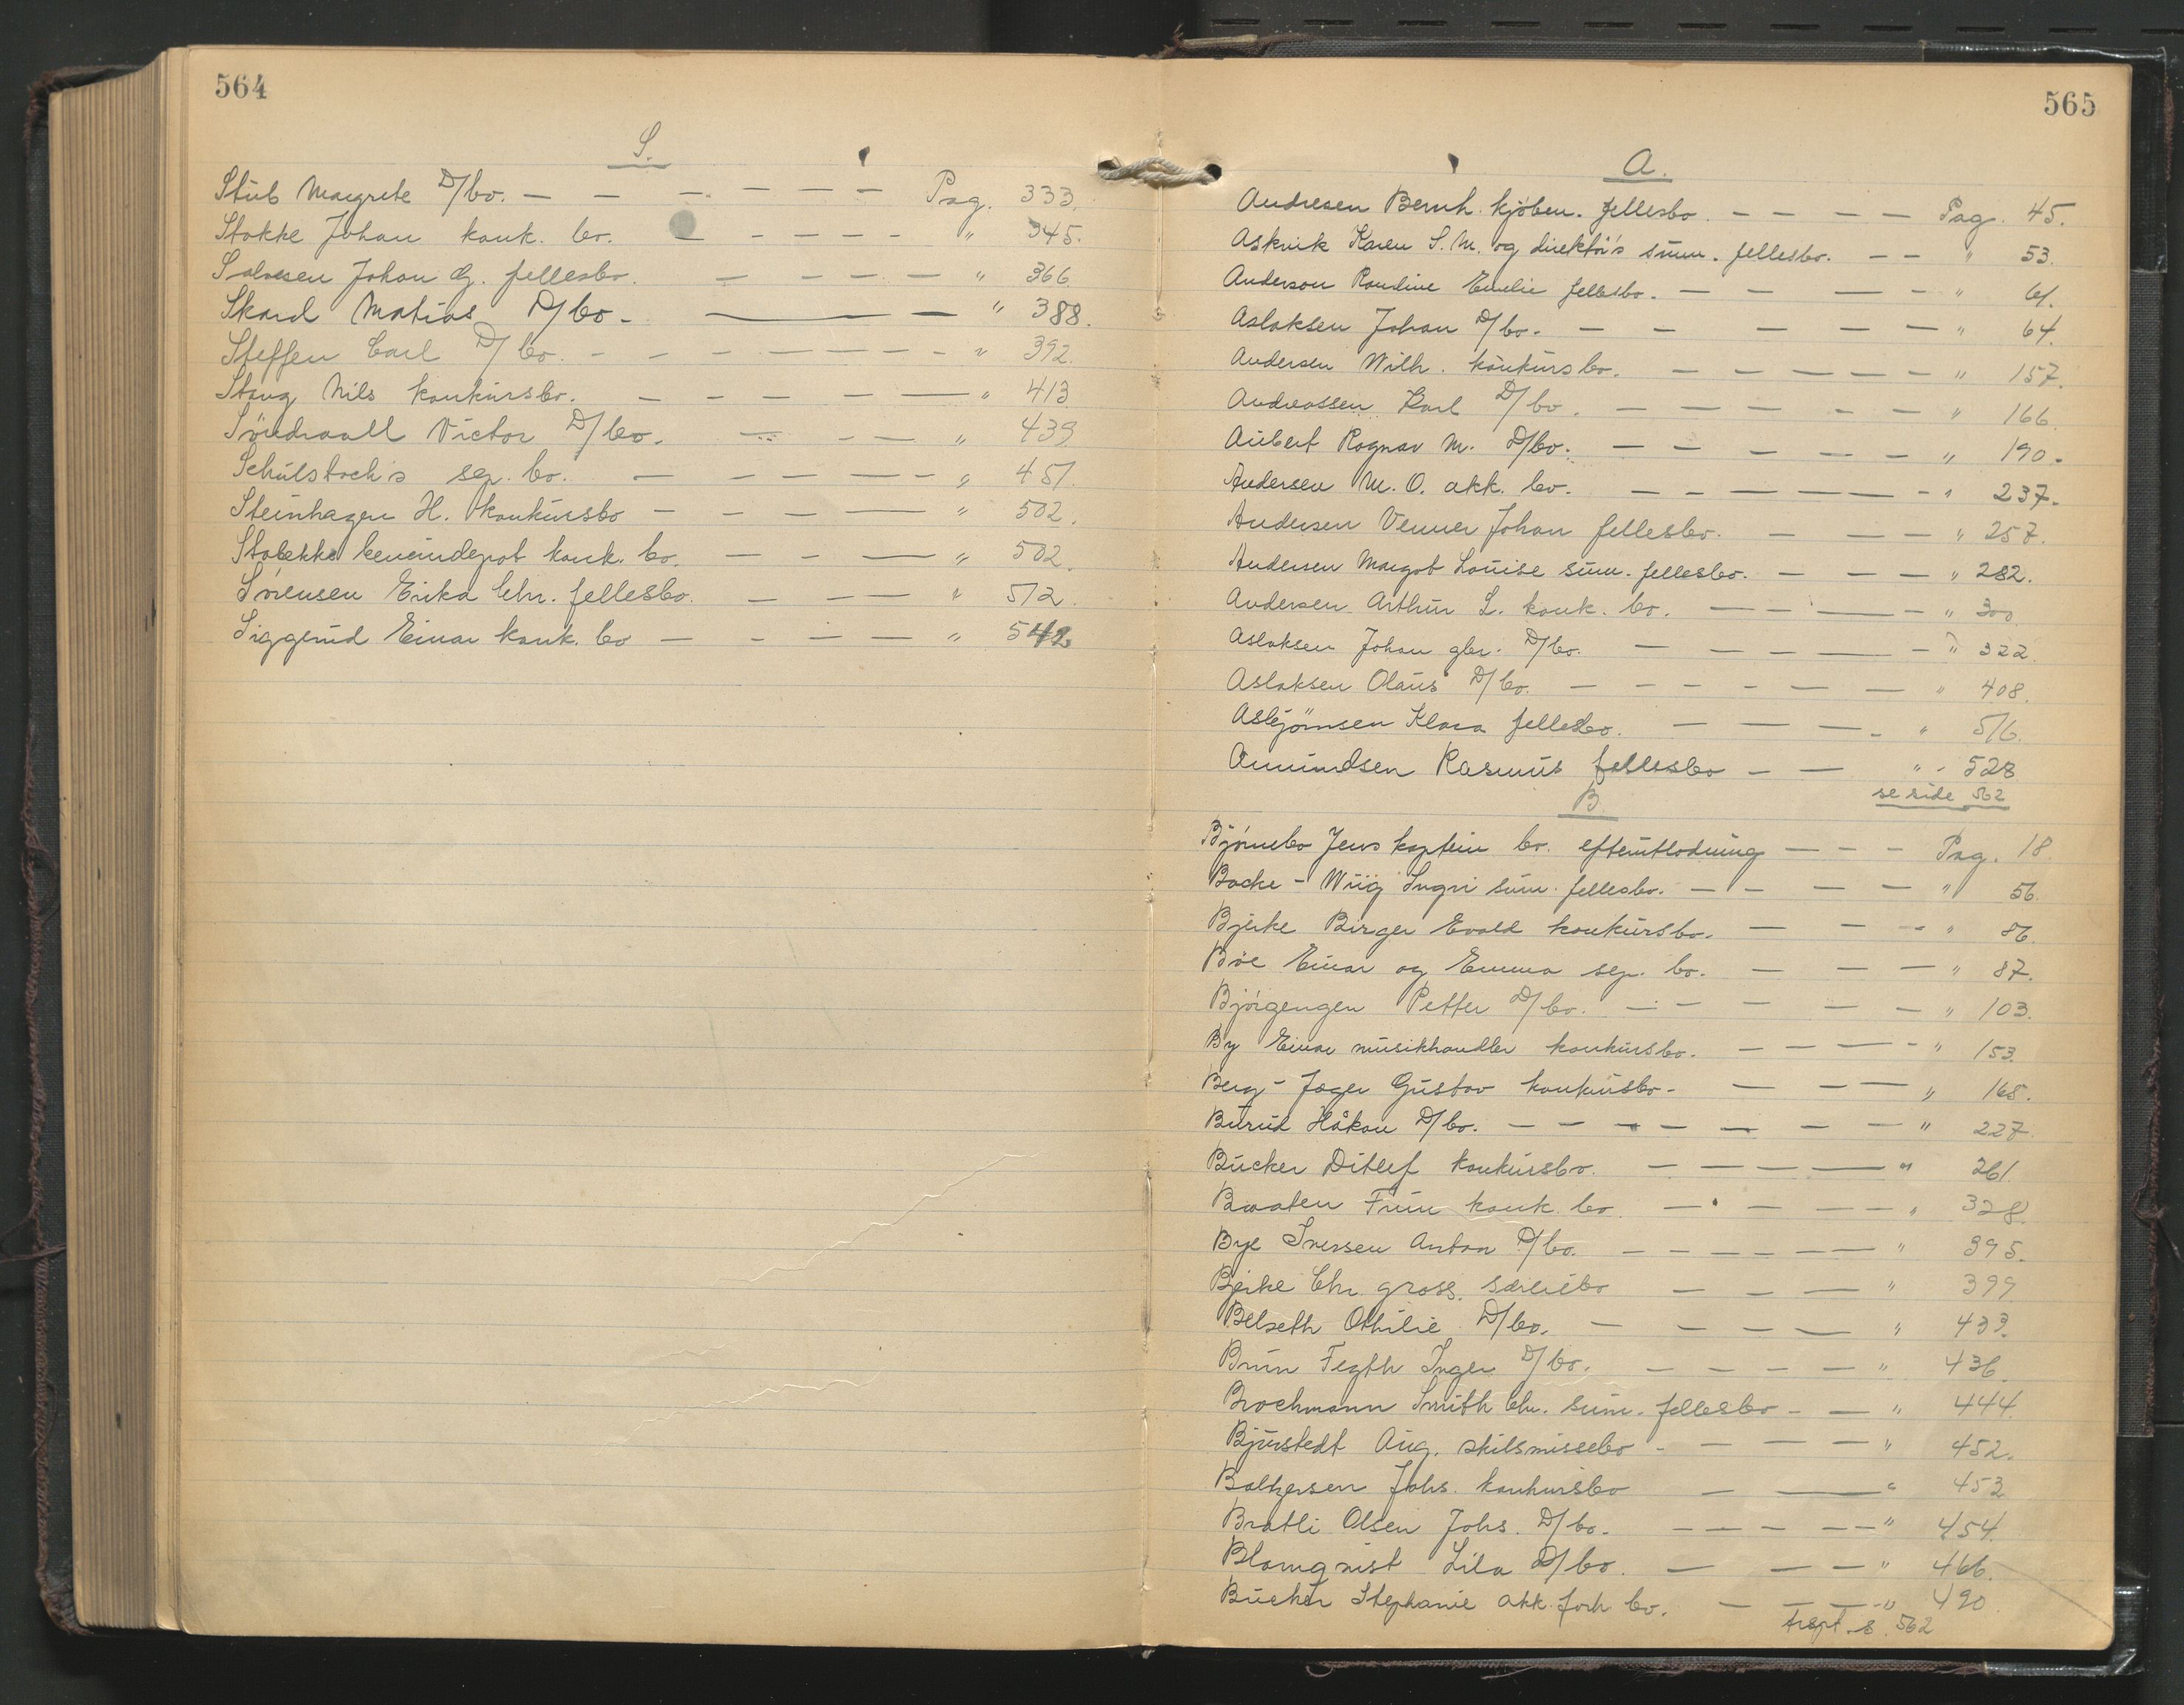 564
S.
Stub Margrete D/bo. — — — — — — Pag. 333.
Stokke Johan konk. bo. — — — — — " 345.
Salvesen Johan G. fellesbo. — — — — " 366
Skard Matias D/bo — — — " 388.
Steffen Carl D/bo. — — — — — — — " 392.
Stang Nils konkursbo. — — — — — " 413
Söndraall Victor D/bo. — — — " 439.
Schulstoch's sep. bo. — — — — — " 451.
Steinhagen H. konkursbo — — — — " 502.
Stabekk konk. bo. — — — " 502.
Sörensen Erika Chr. fellesbo. — — — " 512.
Siggerud Einar konk. bo — — — — " 542
565
A.
Andresen Bernh. kjöbm. fellesbo. — — — — Pag. 45.
Askvik Karen S. M. og direktör's summ. fellesbo. — — " 53.
Anderson Pauline Emelie fellesbo. — — — — " 61.
Aslaksen Johan D/bo. — — — — — " 64.
Andersen Wilh. konkursbo. — — — — — " 157.
Andreassen Karl D/bo. — — — — — — " 166.
Aubert Ragnar M. D/bo. — — — — — — " 190.
Andersen M. O. akk. bo. — — — — — " 237.
Andersen Venner Johan fellesbo. — — — " 257.
Andersen Margot Louise summ. fellesbo. — — — " 282.
Andersen Arthur L. konk. bo. — — — — " 300.
Aslaksen Johan gbr. D/bo. — — — — — " 322.
Aslaksen Olaus D/bo. — — — — — — " 408.
Asbjörnsen Klara fellesbo. — — — — " 516.
Amundsen Rasmus fellesbo — — " 528
se side 562
B.
Björnebo Jens kaptein bo. efterutlodning — — — Pag. 18.
Backe - Wiig Ingri summ. fellesbo. — — — — " 56.
Bjerke Birger Evald konkursbo. — — — " 86.
Böe Einar og Emma sep. bo. — — — " 87.
Björgengen Petter D/bo. — — — — — " 103.
By Einar musikhandler konkursbo. — — — — " 153.
Berg - Jæger Gustav konkursbo — — — " 165.
Burud Håkon D/bo. — — — — — — — " 227.
Bücker Ditlef konkursbo. — — — — " 261.
Braaten Finn konk. bo. — — — — — " 328.
Bye Iversen Anton D/bo. — — — — — " 395.
Bjerke Chr. gross. særeiebo — — — " 399
Belseth Othilie D/bo. — — — — " 433.
Brun Tegth Inger D/bo. — — — — " 436.
Brochmann Smith Chr. summ. fellesbo — — " 444.
Bjurstedt Aug. skilsmissebo — — — — " 452.
Baltzersen Johs. konkursbo — — " 453
Bratli Olsen Johs. D/bo. — — — — — " 454.
Blomqvist Lila D/bo. — — — " 466.
Bücher Stephanie akk. forh. bo. — — — " 490
frspt. s. 562